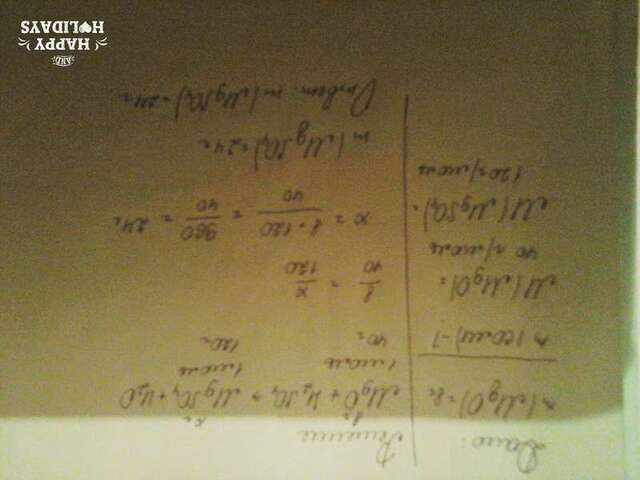 Дано:
m(MgO)=8г
m(соли)-?
M(MgO)=
40 г/моль
M(MgSO₄)=
120 г/моль
Решение
8г xг
MgO + H₂SO₄ → MgSO₄ + H₂O
1моль 1моль
40г 120г
8/40 = x/120
x = 8·120/40 = 960/40 = 24г
m(MgSO₄)=24г
Ответ: m(MgSO₄)=24г
AND
HAPPY
HOLIDAYS